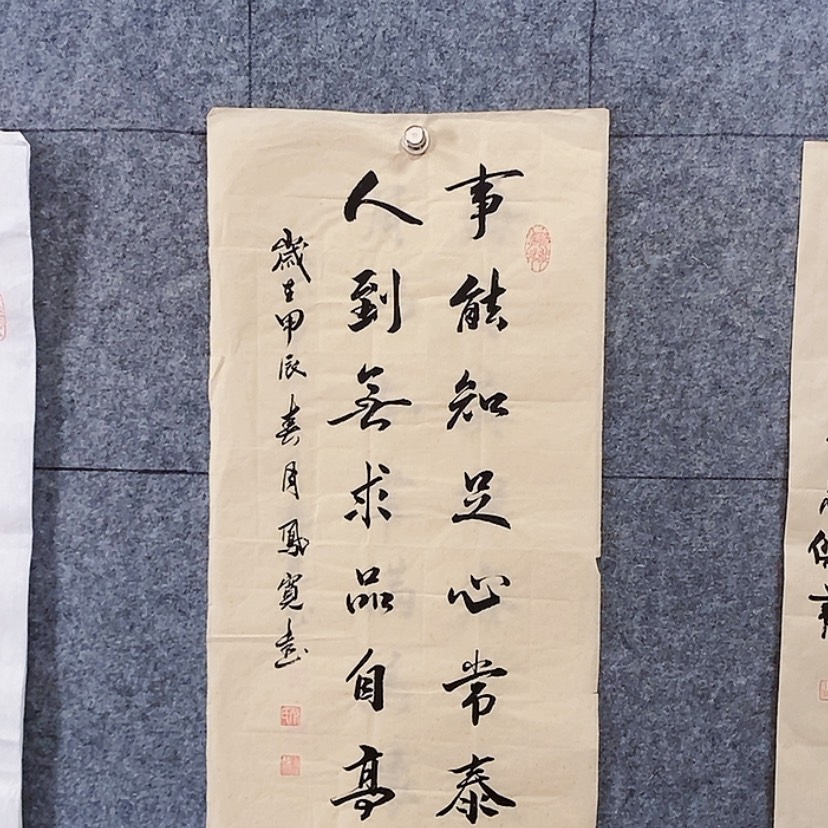 事能知足心常泰
人到無求品自高
歲在甲辰春月鳳寬書